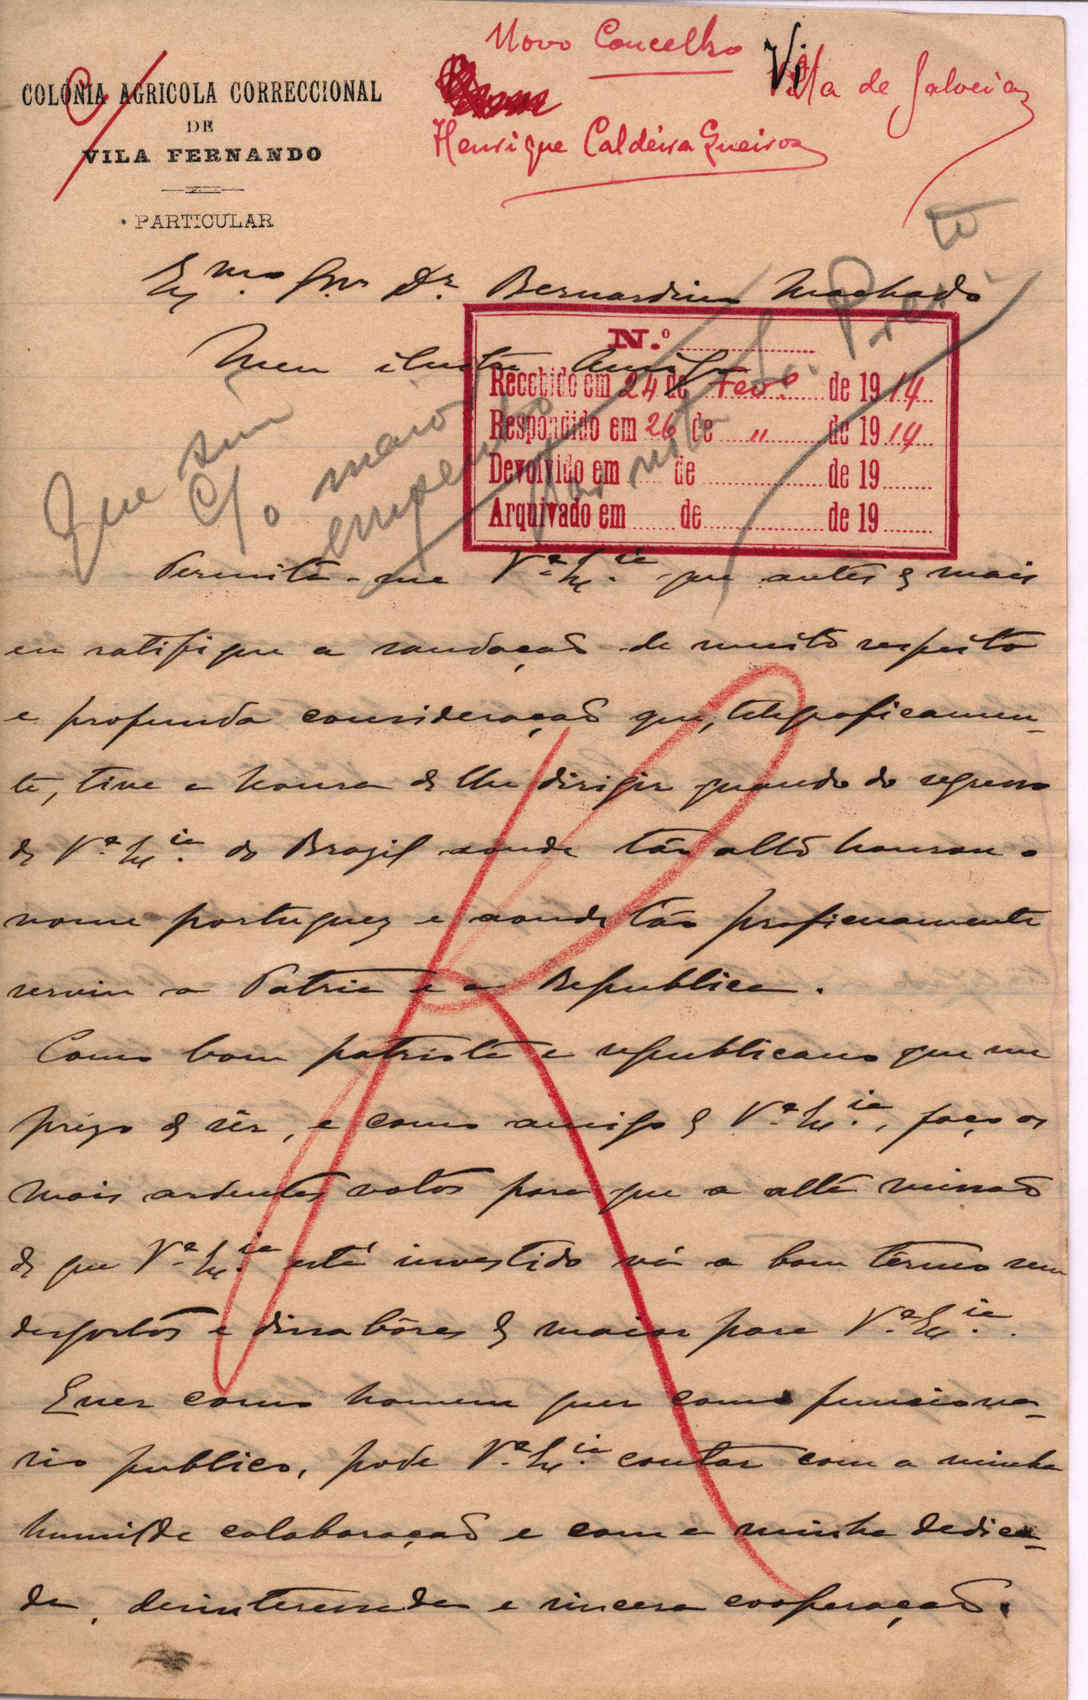 Novo Concelho
Villa de Galveias
Henrique Caldeira Queiroz
COLONIA AGRICOLA CORRECCIONAL
DE
VILA FERNANDO
PARTICULAR
Ex.mo Snr. Dr. Bernardino Machado
Meu ilustre Amigo
N.º
Recebido em 24 de Fev.º de 1914
Respondido em 26 de " de 1914
Devolvido em de de 19
Arquivado em de de 19
Que sim
c/o maior
empenho
Permita-me V.ª Ex.cia que antes de mais
eu ratifique a saudação de muito respeito
e profunda consideração que, telegraficamen-
te, tive a honra de lhe dirigir quando do regresso
de V.ª Ex.cia do Brazil aonde tão alto honrou o
nome portuguez e aonde tão proficuamente
serviu a Patria e a Republica.
Como bom patriota e republicano que me
prezo de sêr, e como amigo de V.ª Ex.cia, faço os
mais ardentes votos para que a alta missão
de que V.ª Ex.cia está investido vá a bom têrmo sem
desgostos e dissabôres de maior para V.ª Ex.cia.
Quer como homem quer como funciona-
rio publico, pode V.ª Ex.cia contar com a minha
humilde colaboração e com a minha dedica-
da, desinteressada e sincera cooperação.